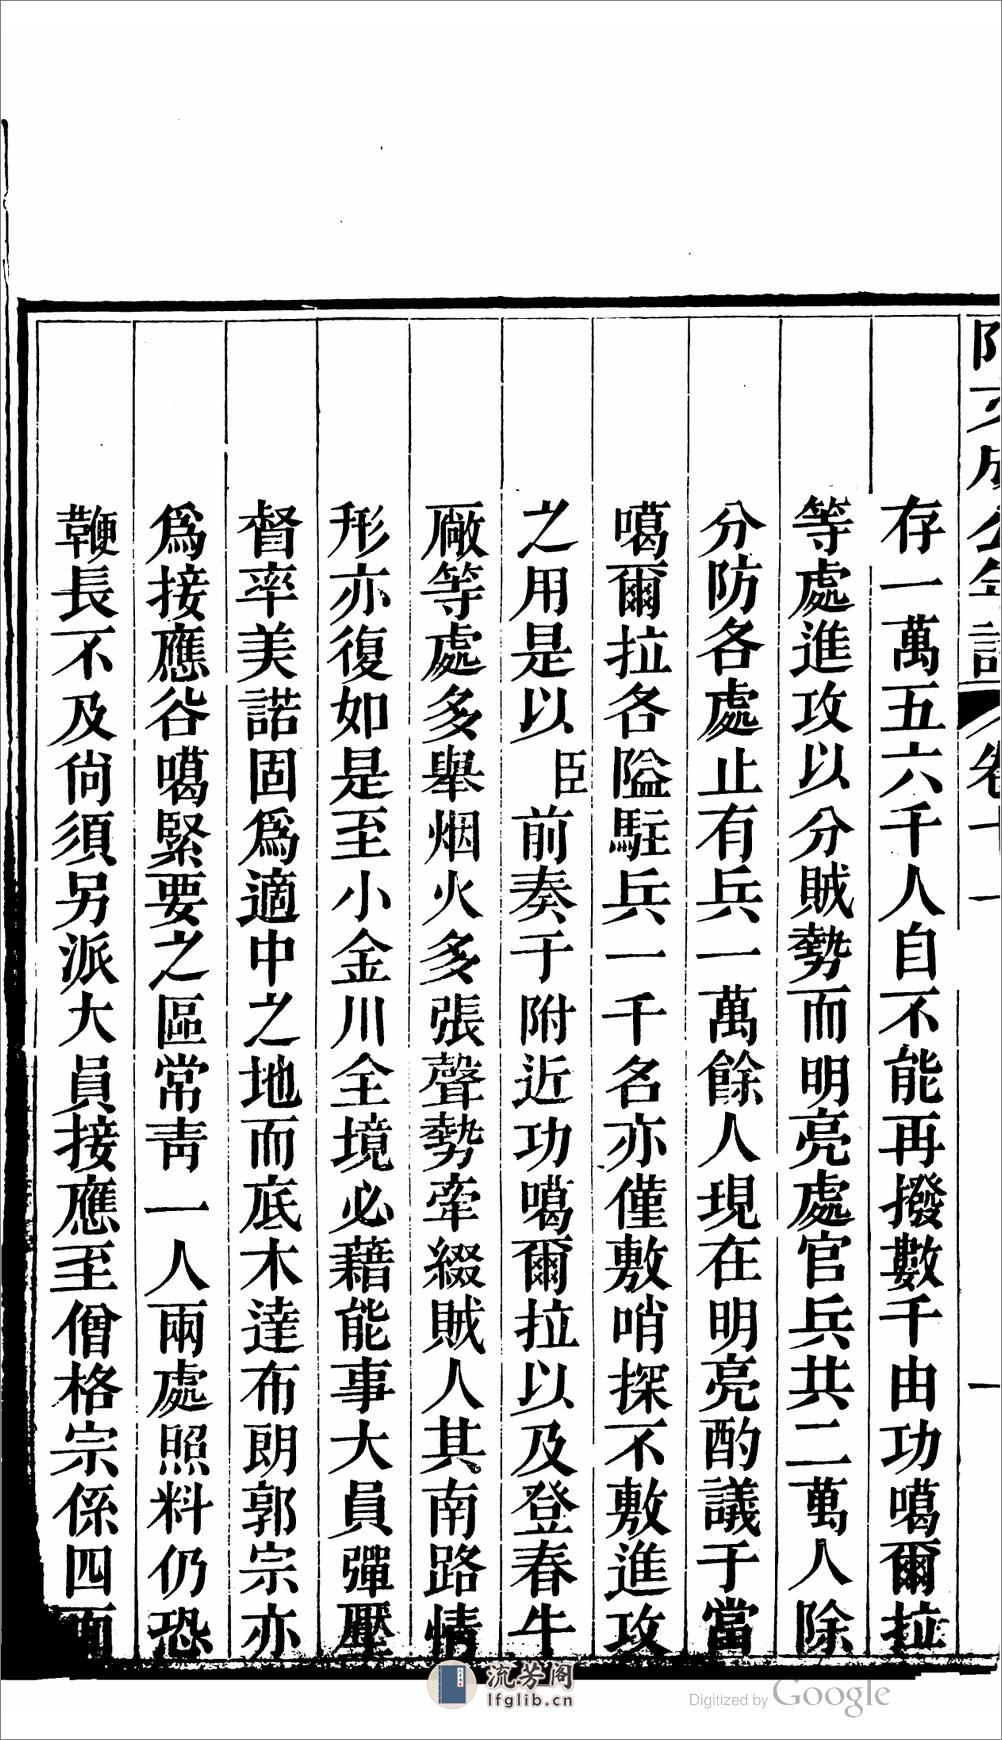 阿文成公年譜 卷十一 一
存一萬五六千人自不能再撥數千由功噶爾拉
等處進攻以分賊勢而明亮處官兵共二萬人除
分防各處止有兵一萬餘人現在明亮酌議于當
噶爾拉各隘駐兵一千名亦僅敷哨探不敷進攻
之用是以臣前奏于附近功噶爾拉以及登春牛
廠等處多舉烟火多張聲勢牽綴賊人其南路情
形亦復如是至小金川全境必藉能事大員彈壓
督率美諾固爲適中之地而底木達布朗郭宗亦
爲接應谷噶緊要之區常青一人兩處照料仍恐
鞭長不及尙須另派大員接應至僧格宗係四面
流芳阁
lfglib.cn
Digitized by Google